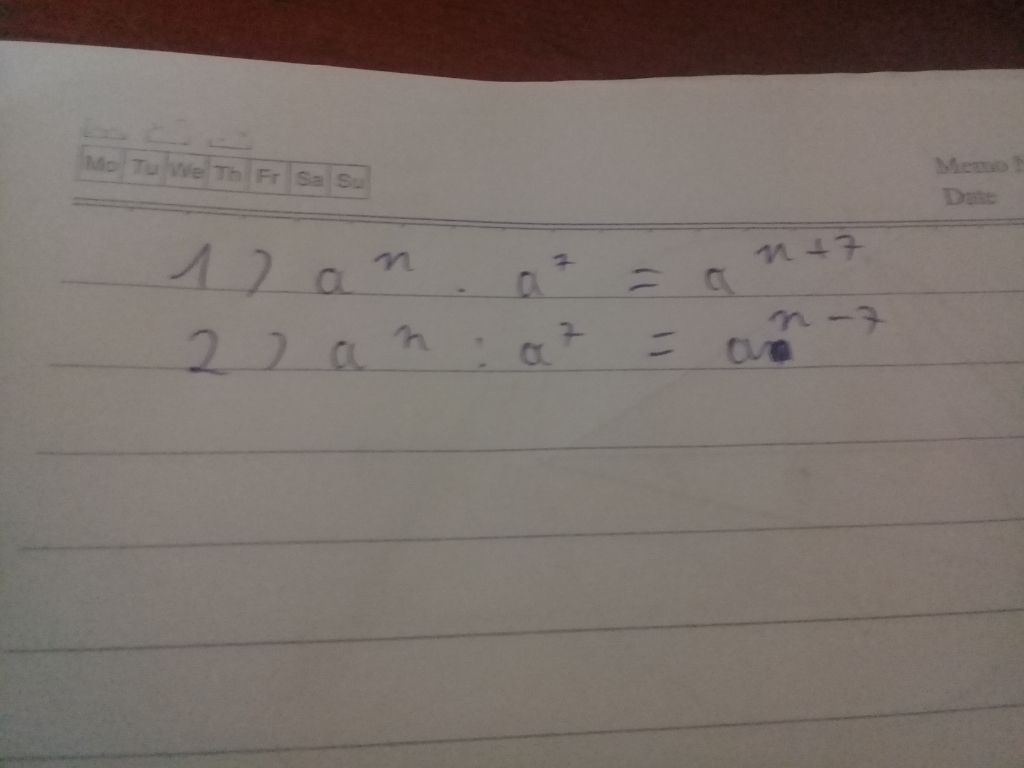 Mo Tu We Th Fr Sa Su
Memo
Date
1) aⁿ · a⁷ = aⁿ⁺⁷
2) aⁿ : a⁷ = aⁿ⁻⁷